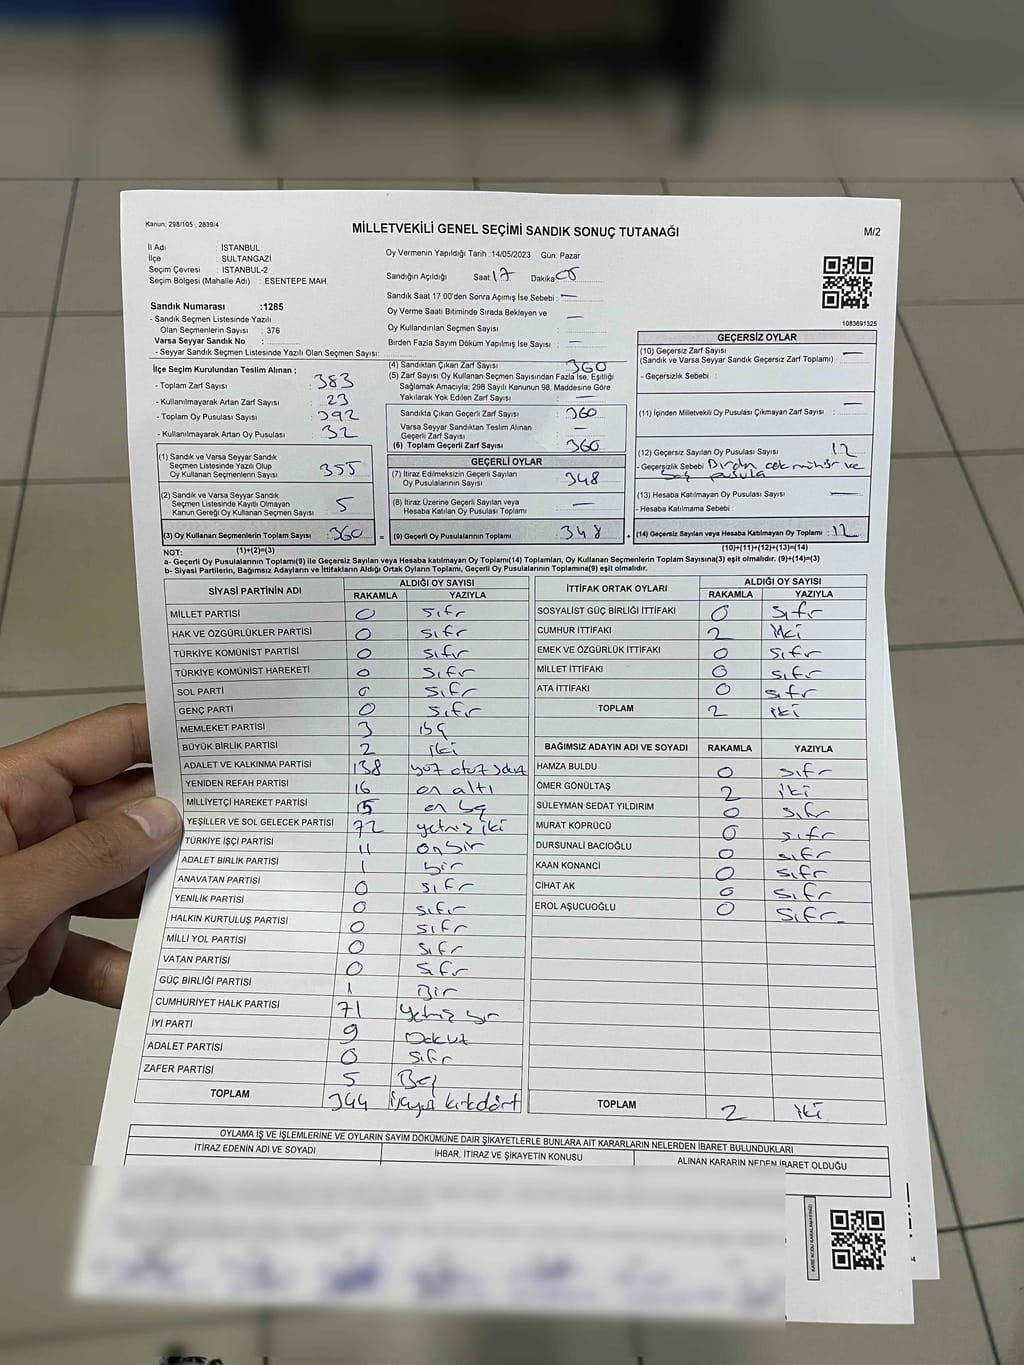 Kanun: 298/105 , 2839/4
MİLLETVEKİLİ GENEL SEÇİMİ SANDIK SONUÇ TUTANAĞI
M/2
İl Adı : İSTANBUL
İlçe : SULTANGAZİ
Seçim Çevresi : İSTANBUL-2
Seçim Bölgesi (Mahalle Adı) : ESENTEPE MAH.
Oy Vermenin Yapıldığı Tarih :14/05/2023 Gün: Pazar
Sandığın Açıldığı Saat: 17 Dakika
Sandık Saat 17:00'den Sonra Açımış İse Sebebi : —
Oy Verme Saati Bitiminde Sırada Bekleyen ve
Oy Kullandırılan Seçmen Sayısı : —
Birden Fazla Sayım Döküm Yapılmış İse Sayısı : —
1083691325
Sandık Numarası :1285
- Sandık Seçmen Listesinde Yazılı
Olan Seçmenlerin Sayısı : 376
Varsa Seyyar Sandık No :
- Seyyar Sandık Seçmen Listesinde Yazılı Olan Seçmen Sayısı:
İlçe Seçim Kurulundan Teslim Alınan ;
- Toplam Zarf Sayısı : 383
- Kullanılmayarak Artan Zarf Sayısı : 23
- Toplam Oy Pusulası Sayısı : 392
- Kullanılmayarak Artan Oy Pusulası : 32
(1) Sandık ve Varsa Seyyar Sandık
Seçmen Listesinde Yazılı Olup
Oy Kullanan Seçmenlerin Sayısı : 355
(2) Sandık ve Varsa Seyyar Sandık
Seçmen Listesinde Kayıtlı Olmayan
Kanun Gereği Oy Kullanan Seçmen Sayısı : 5
(3) Oy Kullanan Seçmenlerin Toplam Sayısı : 360
(1)+(2)=(3)
(4) Sandıktan Çıkan Zarf Sayısı : 360
(5) Zarf Sayısı Oy Kullanan Seçmen Sayısından Fazla İse, Eşitliği
Sağlamak Amacıyla; 298 Sayılı Kanunun 98. Maddesine Göre
Yakılarak Yok Edilen Zarf Sayısı : —
Sandıkta Çıkan Geçerli Zarf Sayısı : 360
Varsa Seyyar Sandıktan Teslim Alınan
Geçerli Zarf Sayısı : —
(6) Toplam Geçerli Zarf Sayısı : 360
GEÇERLİ OYLAR
(7) İtiraz Edilmeksizin Geçerli Sayılan
Oy Pusulalarının Sayısı : 348
(8) İtiraz Üzerine Geçerli Sayılan veya
Hesaba Katılan Oy Pusulaları Toplamı : —
= (9) Geçerli Oy Pusulalarının Toplamı : 348 +
GEÇERSİZ OYLAR
(10) Geçersiz Zarf Sayısı : —
(Sandık ve Varsa Seyyar Sandık Geçersiz Zarf Toplamı) :
- Geçersizlik Sebebi :
(11) İçinden Milletvekili Oy Pusulası Çıkmayan Zarf Sayısı : —
(12) Geçersiz Sayılan Oy Pusulası Sayısı : 12
- Geçersizlik Sebebi : Birden çok mühür ve
boş pusula
(13) Hesaba Katılmayan Oy Pusulası Sayısı : —
- Hesaba Katılmama Sebebi :
(14) Geçersiz Sayılan veya Hesaba Katılmayan Oy Toplamı : 12
(10)+(11)+(12)+(13)=(14)
NOT:
a- Geçerli Oy Pusulalarının Toplamı(9) ile Geçersiz Sayılan veya Hesaba katılmayan Oy Toplamı(14) Toplamları, Oy Kullanan Seçmenlerin Toplam Sayısına(3) eşit olmalıdır. (9)+(14)=(3)
b- Siyasi Partilerin, Bağımsız Adayların ve İttifakların Aldığı Ortak Oyların Toplamı, Geçerli Oy Pusulalarının Toplamına(9) eşit olmalıdır.
SİYASİ PARTİNİN ADI ALDIĞI OY SAYISI
RAKAMLA YAZIYLA
MİLLET PARTİSİ 0 sıfır
HAK VE ÖZGÜRLÜKLER PARTİSİ 0 sıfır
TÜRKİYE KOMÜNİST PARTİSİ 0 sıfır
TÜRKİYE KOMÜNİST HAREKETİ 0 sıfır
SOL PARTİ 0 sıfır
GENÇ PARTİ 0 sıfır
MEMLEKET PARTİSİ 3
BÜYÜK BİRLİK PARTİSİ 2 iki
ADALET VE KALKINMA PARTİSİ 138 yüz otuz sekiz
YENİDEN REFAH PARTİSİ 16 on altı
MİLLİYETÇİ HAREKET PARTİSİ 15 on beş
YEŞİLLER VE SOL GELECEK PARTİSİ 72 yetmiş iki
TÜRKİYE İŞÇİ PARTİSİ 11 onbir
ADALET BİRLİK PARTİSİ 1 bir
ANAVATAN PARTİSİ 0 sıfır
YENİLİK PARTİSİ 0 sıfır
HALKIN KURTULUŞ PARTİSİ 0 sıfır
MİLLİ YOL PARTİSİ 0 sıfır
VATAN PARTİSİ 0 sıfır
GÜÇ BİRLİĞİ PARTİSİ 1 Bir
CUMHURİYET HALK PARTİSİ 71 yetmiş bir
İYİ PARTİ 9 Dokuz
ADALET PARTİSİ 0 sıfır
ZAFER PARTİSİ 5 Beş
TOPLAM 344 üçyüz kırkdört
İTTİFAK ORTAK OYLARI ALDIĞI OY SAYISI
RAKAMLA YAZIYLA
SOSYALİST GÜÇ BİRLİĞİ İTTİFAKI 0 sıfır
CUMHUR İTTİFAKI 2 iki
EMEK VE ÖZGÜRLÜK İTTİFAKI 0 sıfır
MİLLET İTTİFAKI 0 sıfır
ATA İTTİFAKI 0 sıfır
TOPLAM 2 iki
BAĞIMSIZ ADAYIN ADI VE SOYADI RAKAMLA YAZIYLA
HAMZA BULDU 0 sıfır
ÖMER GÖNÜLTAŞ 2 iki
SÜLEYMAN SEDAT YILDIRIM 0 sıfır
MURAT KÖPRÜCÜ 0 sıfır
DURSUNALİ BACIOĞLU 0 sıfır
KAAN KONANCİ 0 sıfır
CİHAT AK 0 sıfır
EROL AŞUCUOĞLU 0 sıfır
TOPLAM 2 iki
OYLAMA İŞ VE İŞLEMLERİNE VE OYLARIN SAYIM DÖKÜMÜNE DAİR ŞİKAYETLERLE BUNLARA AİT KARARLARIN NELERDEN İBARET BULUNDUKLARI
İTİRAZ EDENİN ADI VE SOYADI İHBAR, İTİRAZ VE ŞİKAYETİN KONUSU ALINAN KARARIN NEDEN İBARET OLDUĞU